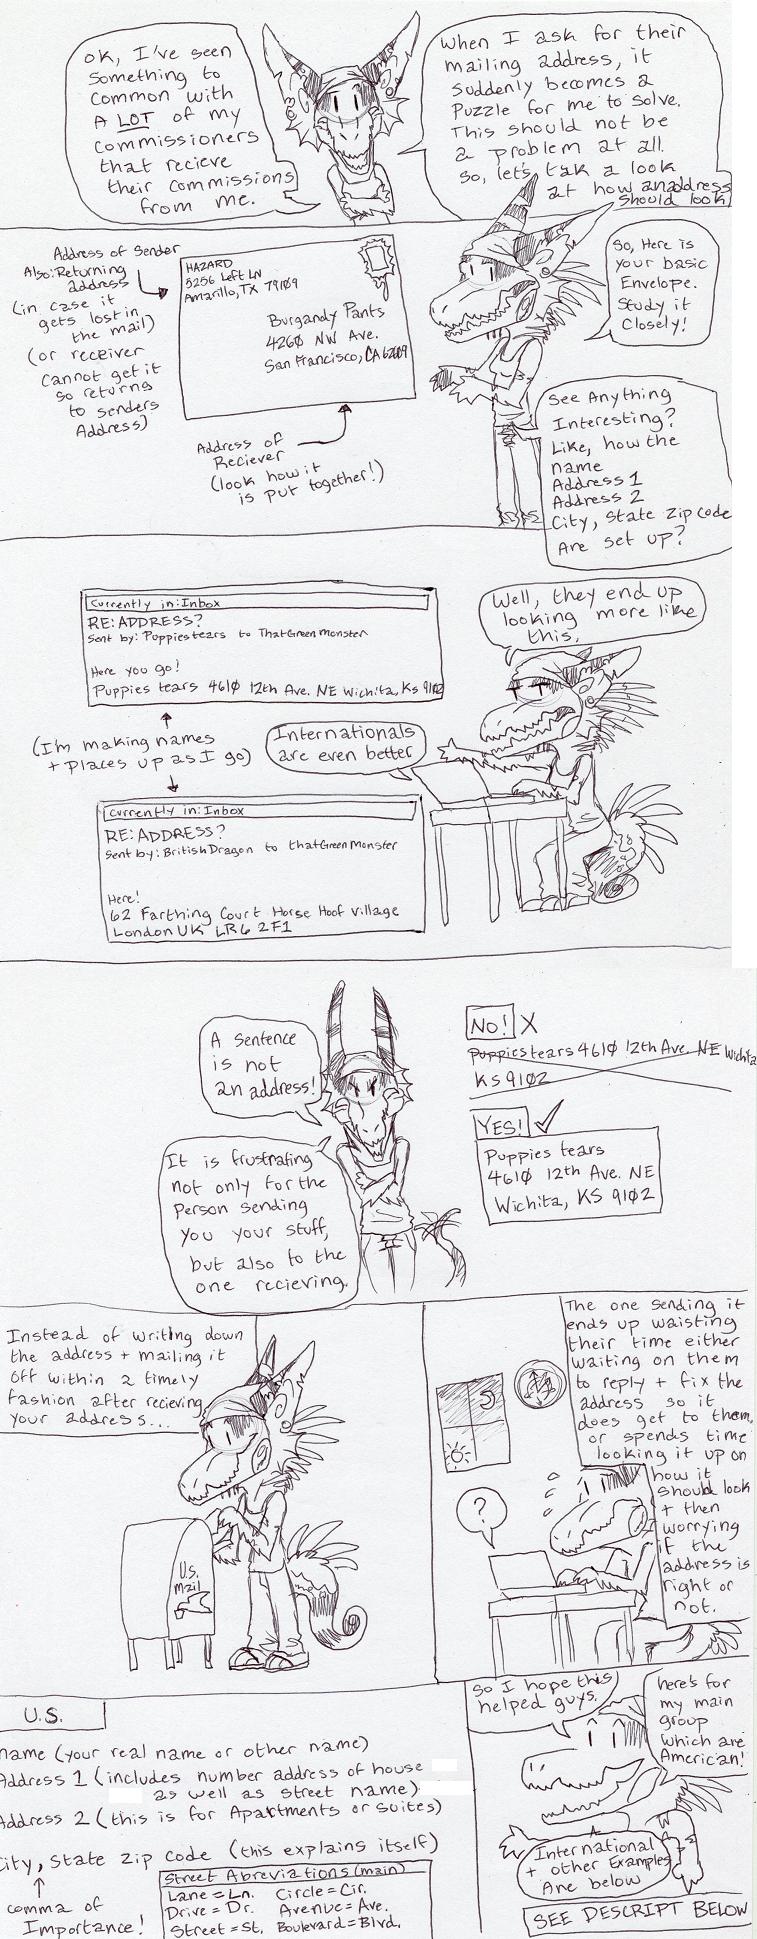 OK, I've seen
something to
common with
A LOT of my
commissioners
that recieve
their commissions
from me.
When I ask for their
mailing address, it
suddenly becomes a
Puzzle for me to solve.
This should not be
a problem at all.
So, let's tak a look
at how an address
should look
Address of Sender
Also: Returning
address
(in case it
gets lost in
the mail)
(or receiver
cannot get it
so returns
to senders
Address)
HAZARD
5256 Left LN
Amarillo, TX 79109
Burgandy Pants
4260 NW Ave.
San Francisco, CA 62009
Address of
Reciever
(look how it
is put together!)
So, Here is
your basic
Envelope.
Study it
Closely!
See Anything
Interesting?
Like, how the
name
Address 1
Address 2
City, State Zip code
Are set up?
Well, they end up
looking more like
this,
Currently in: Inbox
RE: ADDRESS?
Sent by: Puppiestears to ThatGreenMonster
Here you go!
Puppies tears 4610 12th Ave. NE Wichita, Ks 9102
(I'm making names
+ places up as I go)
Internationals
are even better
Currently in: Inbox
RE: ADDRESS?
Sent by: BritishDragon to thatGreenMonster
Here!
62 Farthing Court Horse Hoof Village
London UK LR6 2F1
A sentence
is not
an address!
NO! X
Puppiestears 4610 12th Ave. NE Wichita
KS 9102
YES!
Puppies tears
4610 12th Ave. NE
Wichita, KS 9102
It is frustrating
not only for the
person sending
you your stuff,
but also to the
one recieving.
Instead of writing down
the address + mailing it
off within a timely
fashion after recieving
your address...
U.S.
mail
The one sending it
ends up waisting
their time either
waiting on them
to reply + fix the
address so it
does get to them,
or spends time
looking it up on
how it
should look
+ then
worrying
if the
address is
right or
not.
?
U.S.
name (your real name or other name)
Address 1 (includes number address of house
as well as street name)
Address 2 (this is for Apartments or suites)
City, State Zip code (this explains itself)
comma of
Importance!
Street Abreviations (main)
Lane = Ln. Circle = Cir.
Drive = Dr. Avenue = Ave.
Street = St. Boulevard = Blvd.
So I hope this
helped guys.
here's for
my main
group
which are
American!
International
+ other Examples
Are below
SEE DESCRIPT BELOW